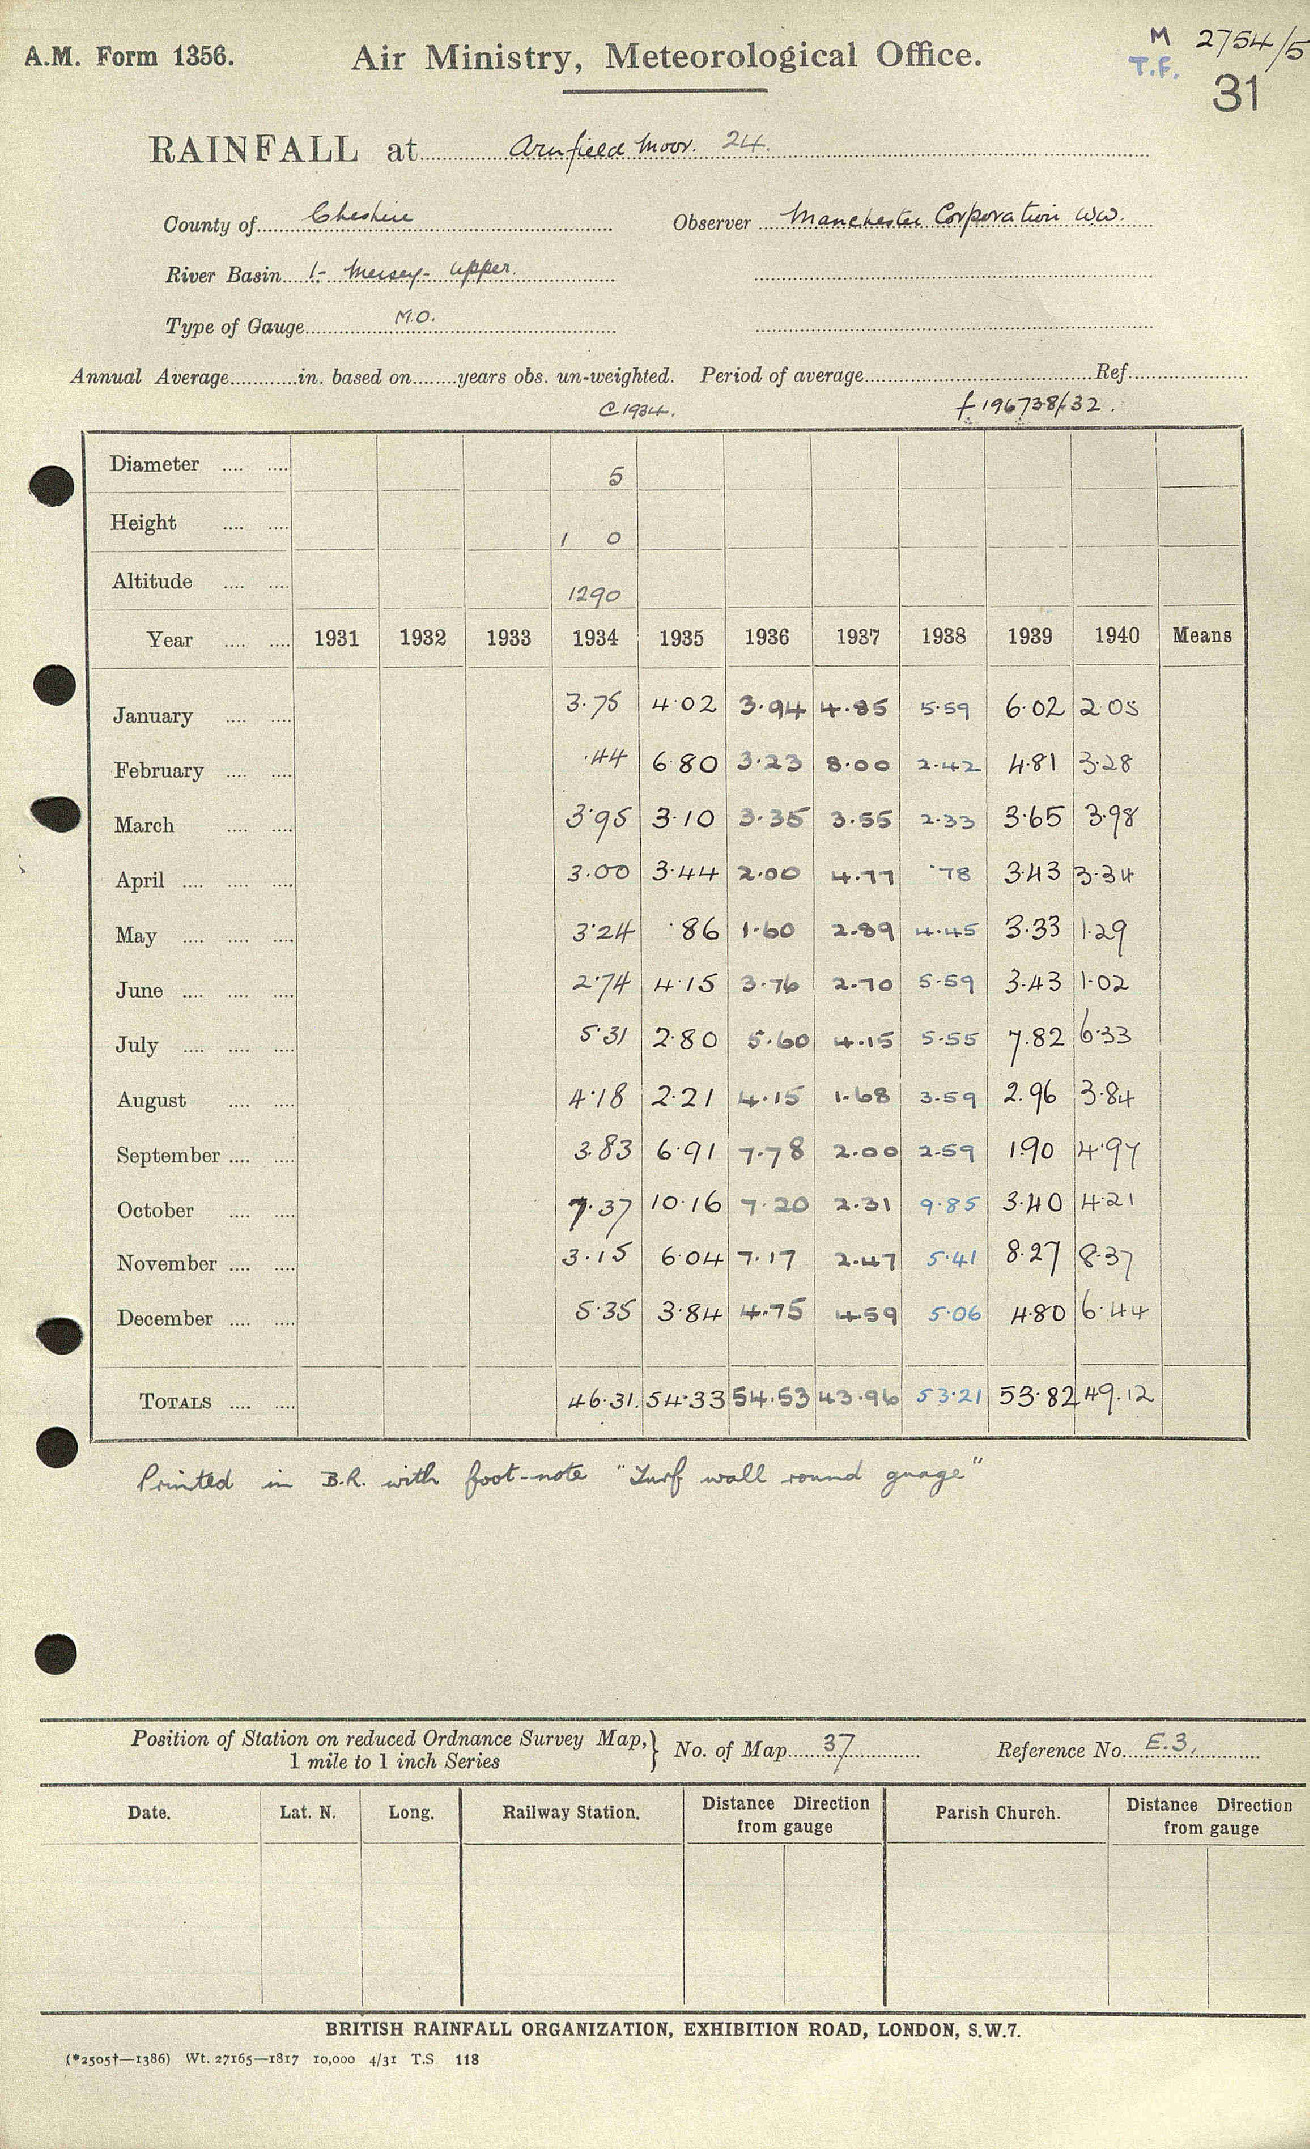 A.M. Form 1356.
Air Ministry, Meteorological Office.
M 2754/5
T.F.
31
RAINFALL at Arnfield Moor. 24.
County of Cheshire Observer Manchester Corporation W.W.
River Basin 1- Mersey- Upper.
Type of Gauge M.O.
Annual Average in. based on years obs. un-weighted. Period of average Ref.
C 1934. f 196738/632.
Diameter .... .... 5
Height .... .... 1 0
Altitude .... .... 1290
Year .... .... 1931 1932 1933 1934 1935 1936 1937 1938 1939 1940 Means
January .... .... 3.75 4.02 3.94 4.85 5.59 6.02 2.05
February .... .... .44 6.80 3.23 8.00 2.42 4.81 3.28
March .... .... 3.95 3.10 3.35 3.55 2.33 3.65 3.98
April .... .... .... 3.00 3.44 2.00 4.77 .78 3.43 3.34
May .... .... .... 3.24 .86 1.60 2.89 4.45 3.33 1.29
June .... .... .... 2.74 4.15 3.76 2.70 5.59 3.43 1.02
July .... .... .... 5.31 2.80 5.60 4.15 5.55 7.82 6.33
August .... .... 4.18 2.21 4.15 1.68 3.59 2.96 3.84
September .... .... 3.83 6.91 7.78 2.00 2.59 1.90 4.97
October .... .... 7.37 10.16 7.20 2.31 9.85 3.40 4.21
November .... .... 3.15 6.04 7.17 2.47 5.41 8.27 8.37
December .... .... 5.35 3.84 4.75 4.59 5.06 4.80 6.44
TOTALS .... .... 46.31. 54.33 54.53 43.96 53.21 53.82 49.12
Printed in B.R. with foot-note "Turf wall round guage"
Position of Station on reduced Ordnance Survey Map,} No. of Map 37 Reference No. E.3.
1 mile to 1 inch Series
Date. Lat. N. Long. Railway Station. Distance Direction from gauge Parish Church. Distance Direction from gauge
BRITISH RAINFALL ORGANIZATION, EXHIBITION ROAD, LONDON, S.W.7.
(*2505†—1386) Wt. 27165—1817 10,000 4/31 T.S 118